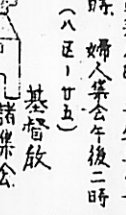 婦人集会午後二時
時
(八区ー廿五)
基督教
諸集会